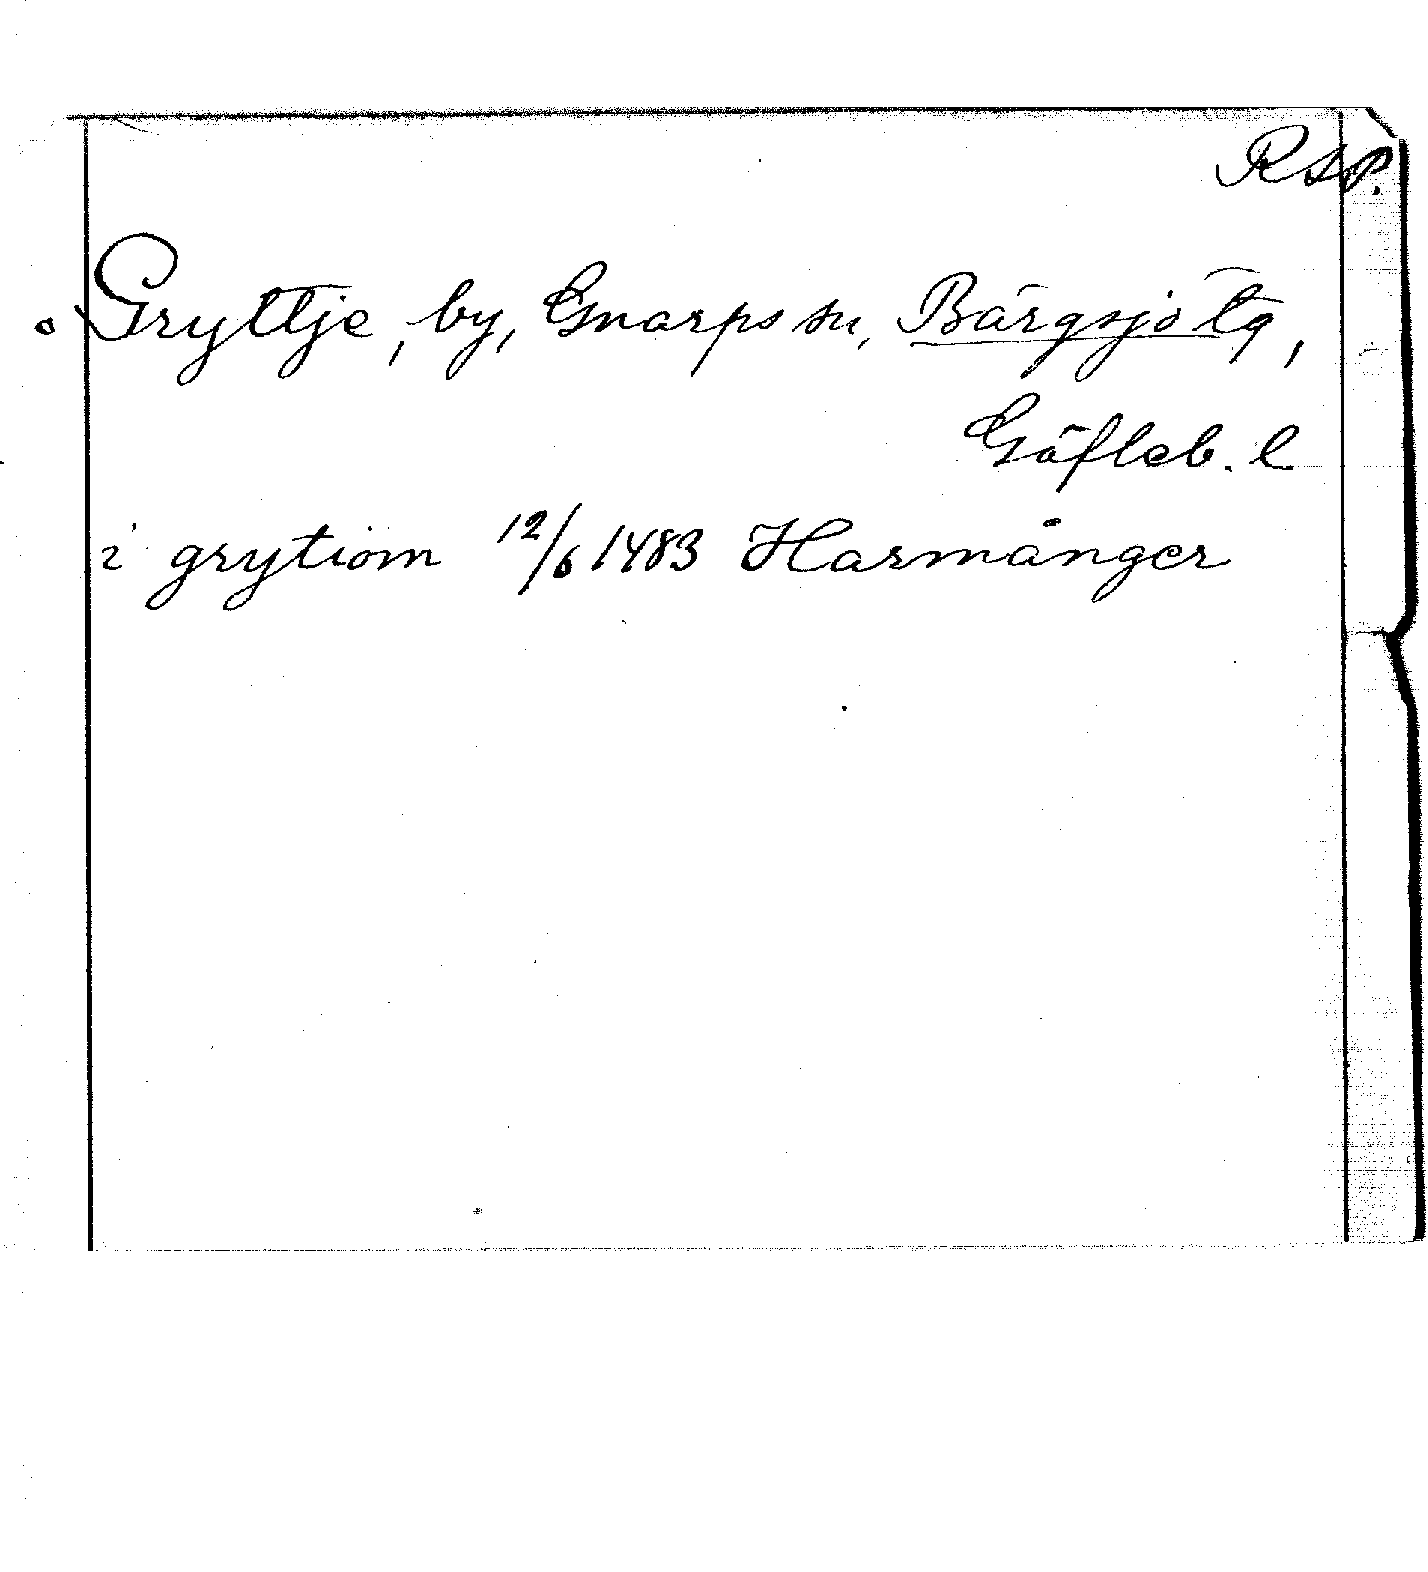 RSP.
Gryttje, by, Gnarps sn, Bärgsjö tg,
Gäfleb. l
i grytiom 12/6 1483 Harmånger